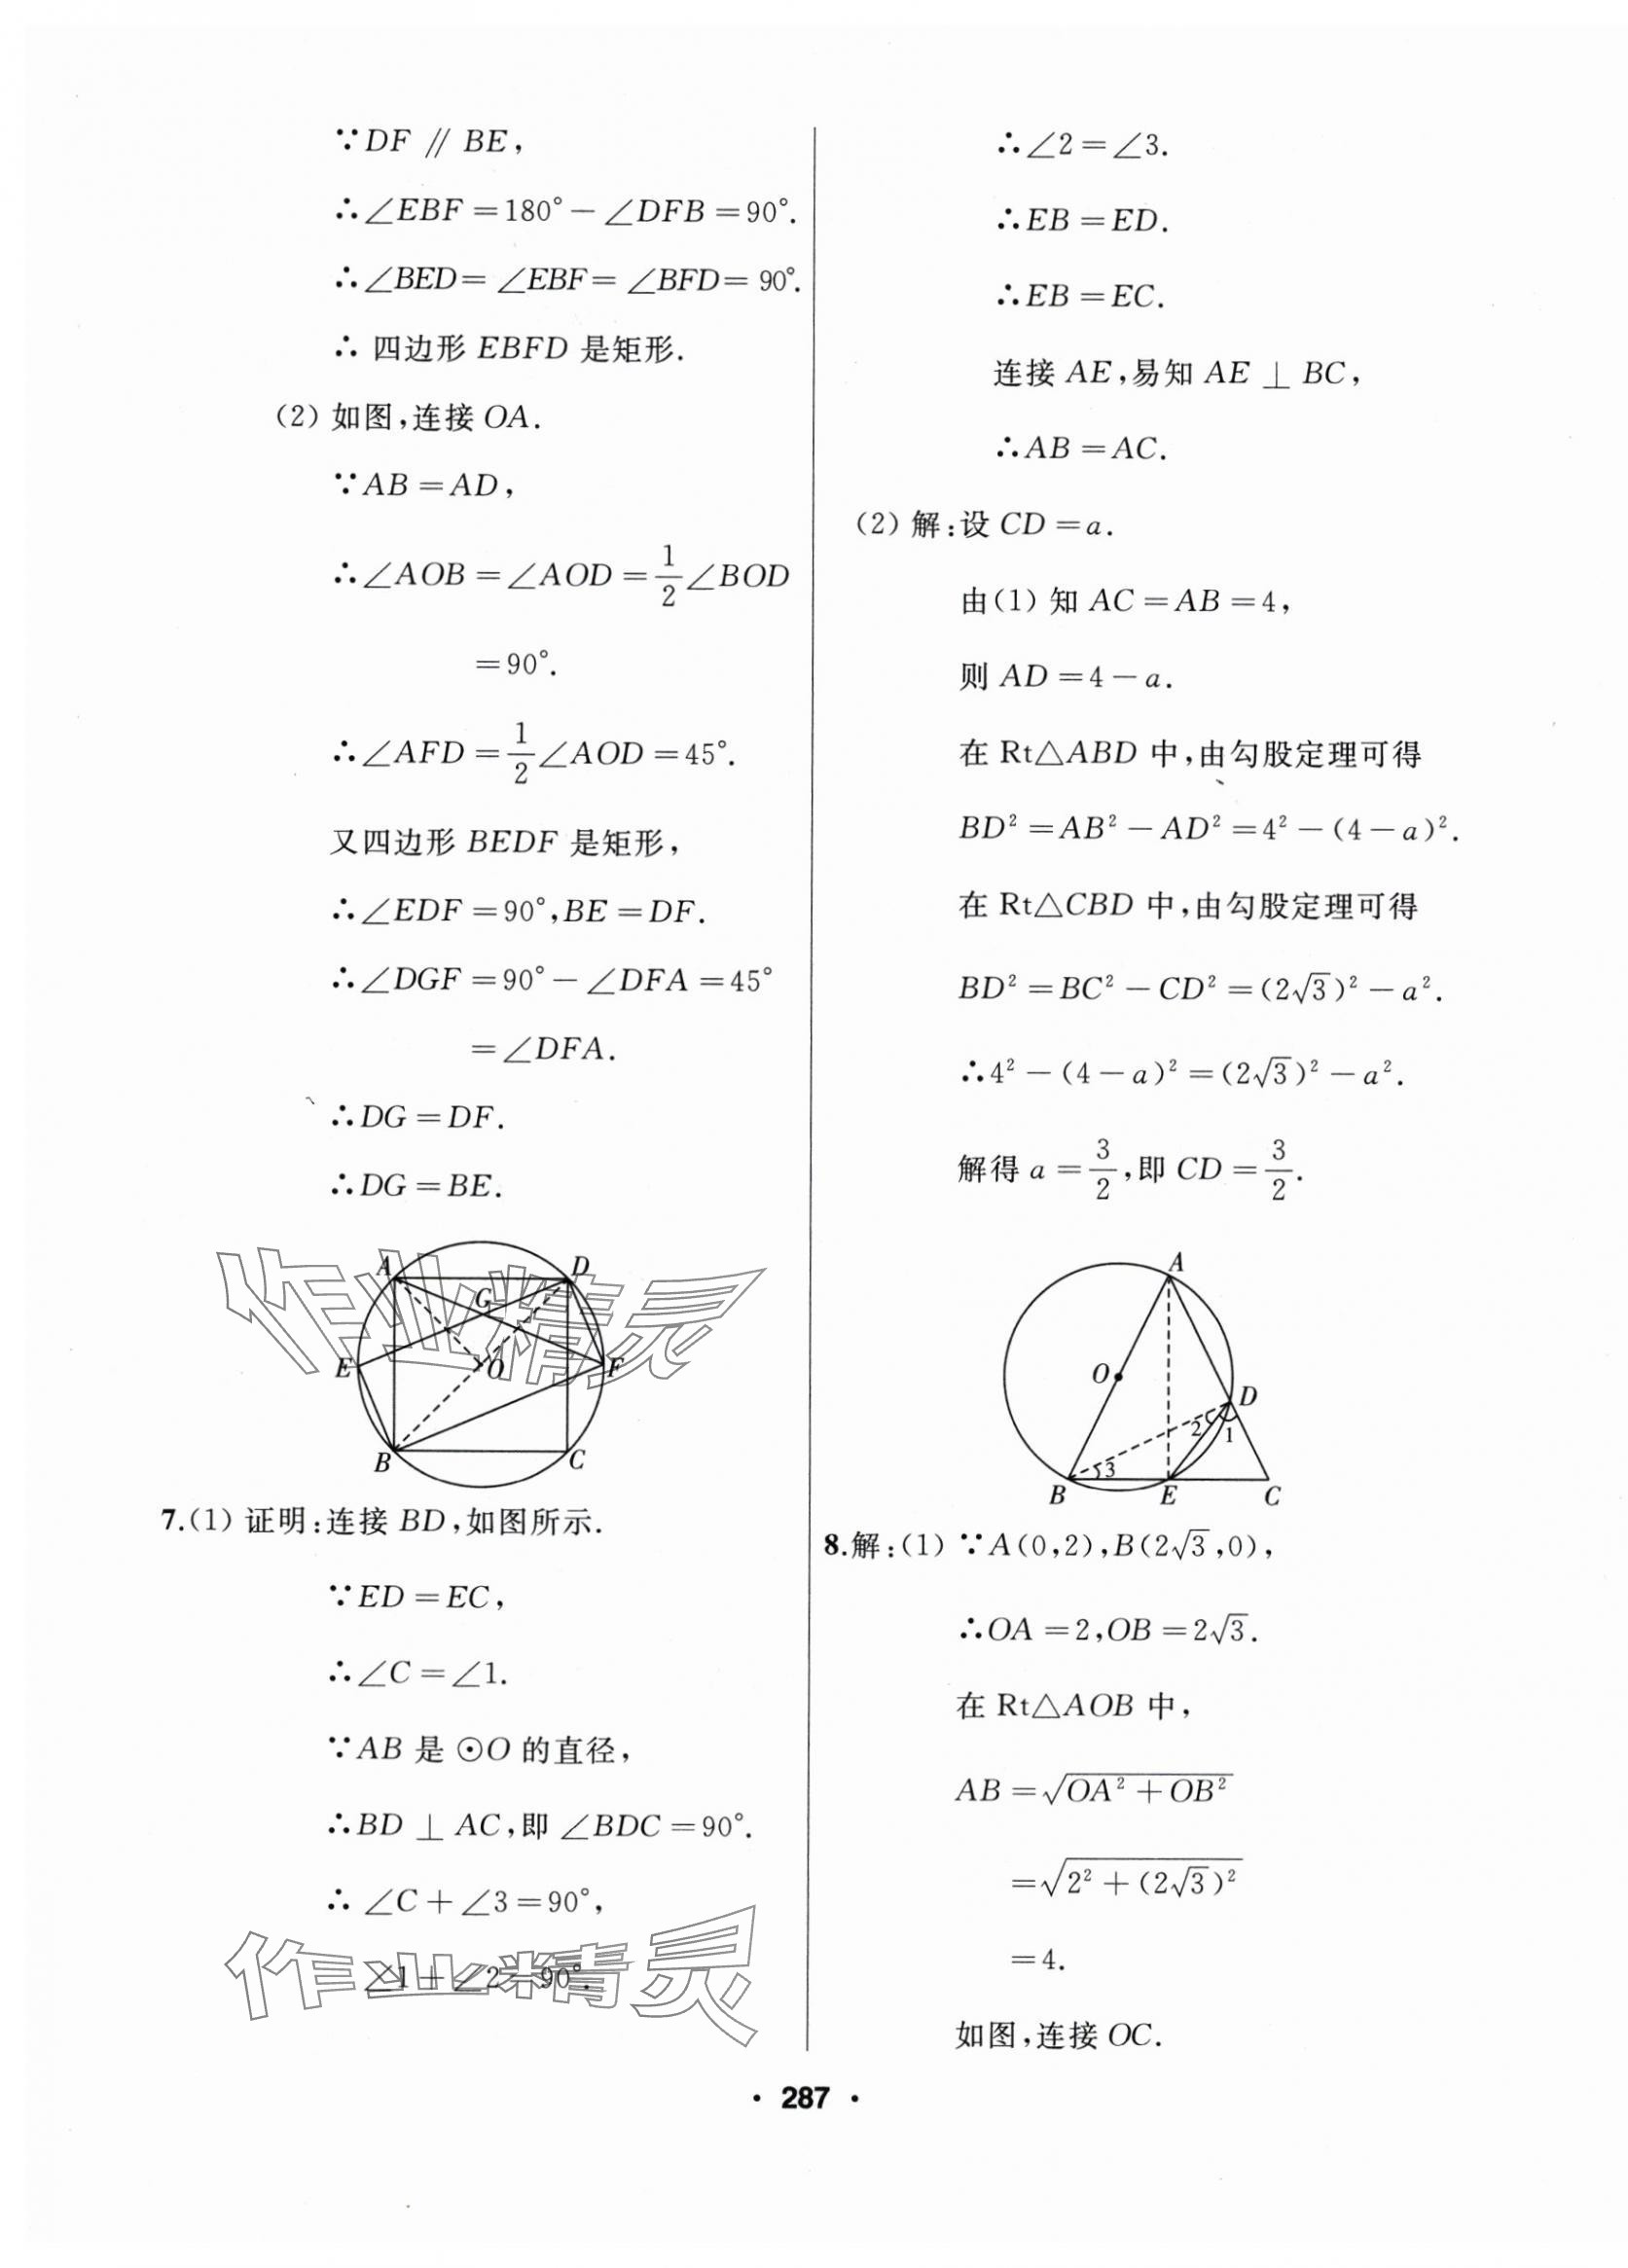 ∵DF ∥ BE,
∴∠EBF=180°-∠DFB=90°.
∴∠BED=∠EBF=∠BFD=90°.
∴ 四边形 EBFD 是矩形.
(2) 如图,连接 OA.
∵AB=AD,
∴∠AOB=∠AOD=1/2∠BOD
=90°.
∴∠AFD=1/2∠AOD=45°.
又四边形 BEDF 是矩形,
∴∠EDF=90°,BE=DF.
∴∠DGF=90°-∠DFA=45°
=∠DFA.
∴DG=DF.
∴DG=BE.
A D
G
E O F
B C
作业精灵
7.(1) 证明:连接 BD,如图所示.
∵ED=EC,
∴∠C=∠1.
∵AB 是 ⊙O 的直径,
∴BD ⊥ AC,即 ∠BDC=90°.
∴ ∠C+∠3=90°,
∠1+∠2=90°.
作业精灵
∴∠2=∠3.
∴EB=ED.
∴EB=EC.
连接 AE,易知 AE ⊥ BC,
∴AB=AC.
(2) 解:设 CD=a.
由(1) 知 AC=AB=4,
则 AD=4-a.
在 Rt△ABD 中,由勾股定理可得
BD²=AB²-AD²=4²-(4-a)².
在 Rt△CBD 中,由勾股定理可得
BD²=BC²-CD²=(2√3)²-a².
∴4²-(4-a)²=(2√3)²-a².
解得 a=3/2,即 CD=3/2.
A
O
D
2 1
3
B E C
8.解:(1) ∵A(0,2),B(2√3,0),
∴OA=2,OB=2√3.
在 Rt△AOB 中,
AB=√(OA²+OB²)
=√(2²+(2√3)²)
=4.
如图,连接 OC.
· 287 ·